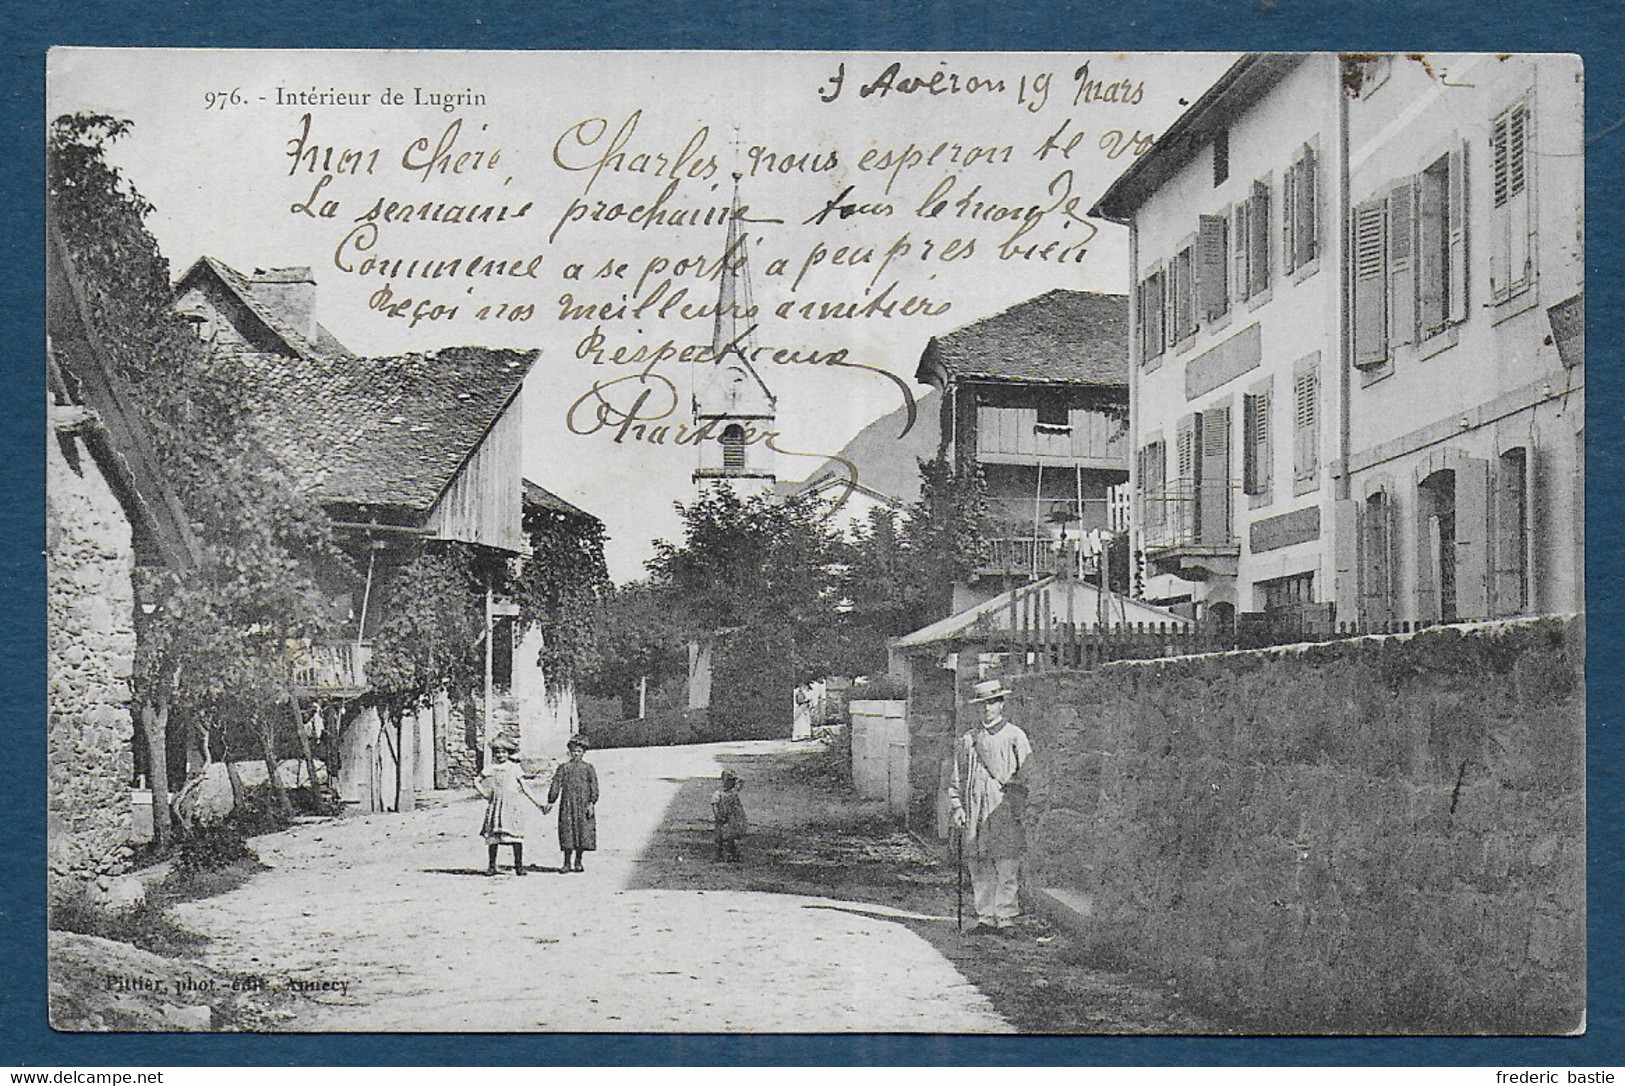 976. - Intérieur de Lugrin
Avéron 19 mars
mon chére Charles nous esperon te voir
La semaine prochaine tous le monde
Commence a se porté a peu pres bien
Reçoi nos meilleurs amitiérs
Respectueux
Chartier
Pittier, phot.-édit., Annecy
frederic bastie